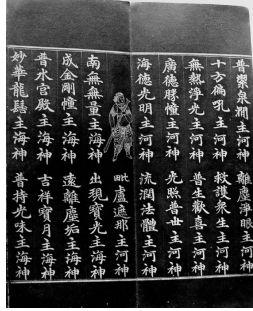 普潔泉澗主河神 離塵淨眼主河神
十方徧吼主河神 救護衆生主河神
無熱淨光主河神 普生歡喜主河神
廣德勝幢主河神 光照普世主河神
海德光明主河神 流潤法體主河神
毗盧遮那河神
南無無量主海神 出現寶光主海神
成金剛幢主海神 遠離塵垢主海神
普水宮殿主海神 吉祥寶月主海神
妙華龍髻主海神 普持光味主海神